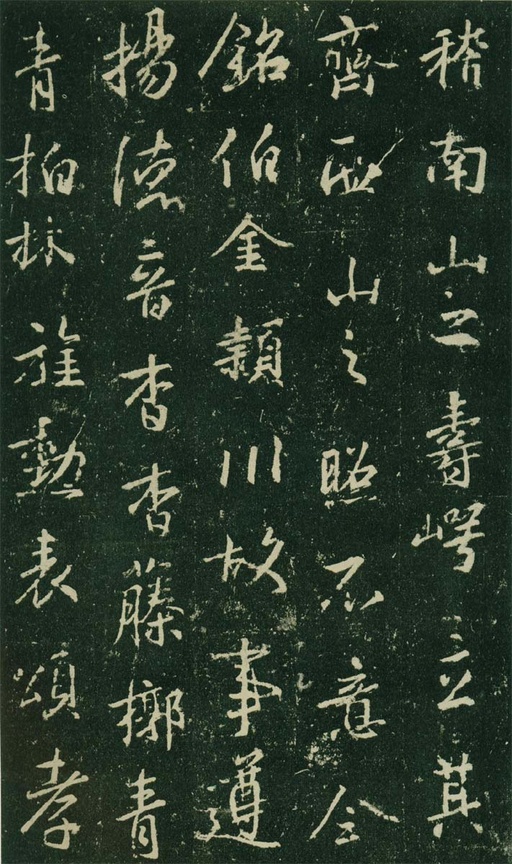 稽南山之壽崿立其
齊山之照不意令
銘伯金穎川故事遵
揚德音杳杳藤槨青
青柏林旌勳表頌孝